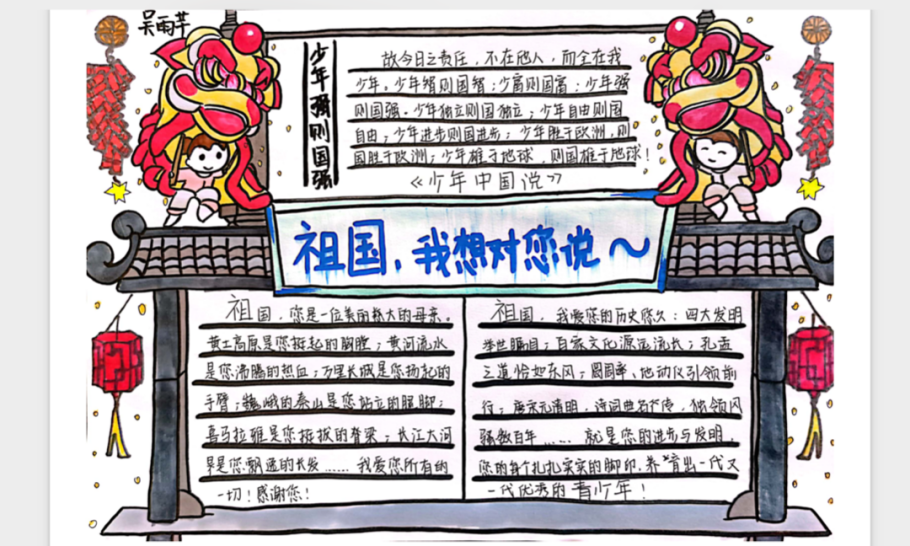 吴雨芊
少年强则国强
故今日之责任，不在他人，而全在我
少年。少年智则国智；少富则国富；少年强
则国强。少年独立则国独立；少年自由则国
自由；少年进步则国进步；少年胜于欧洲，则
国胜于欧洲；少年雄于地球，则国雄于地球！
《少年中国说》
祖国，我想对您说～
祖国，您是一位美丽拣大的母亲。
黄土高原是您挺起的胸膛；黄河流水
是您沸腾的热血；万里长城是您扬起的
手臂；巍峨的泰山是您站立的脚脚；
喜马拉雅是您挺拔的脊梁；长江大河
是您飘逸的长发……我爱您所有的
一切！感谢您！
祖国，我爱您的历史悠久：四大发明
举世瞩目；百家文化源远流长；孔孟
之道恰如东风；圆周率、地动仪引领前
行；唐宋元清明，诗词曲名广传，独领风
骚数百年……就是您的进步与发明，
您的每个扎扎实实的脚印，养育出一代又
一代优秀的青少年！